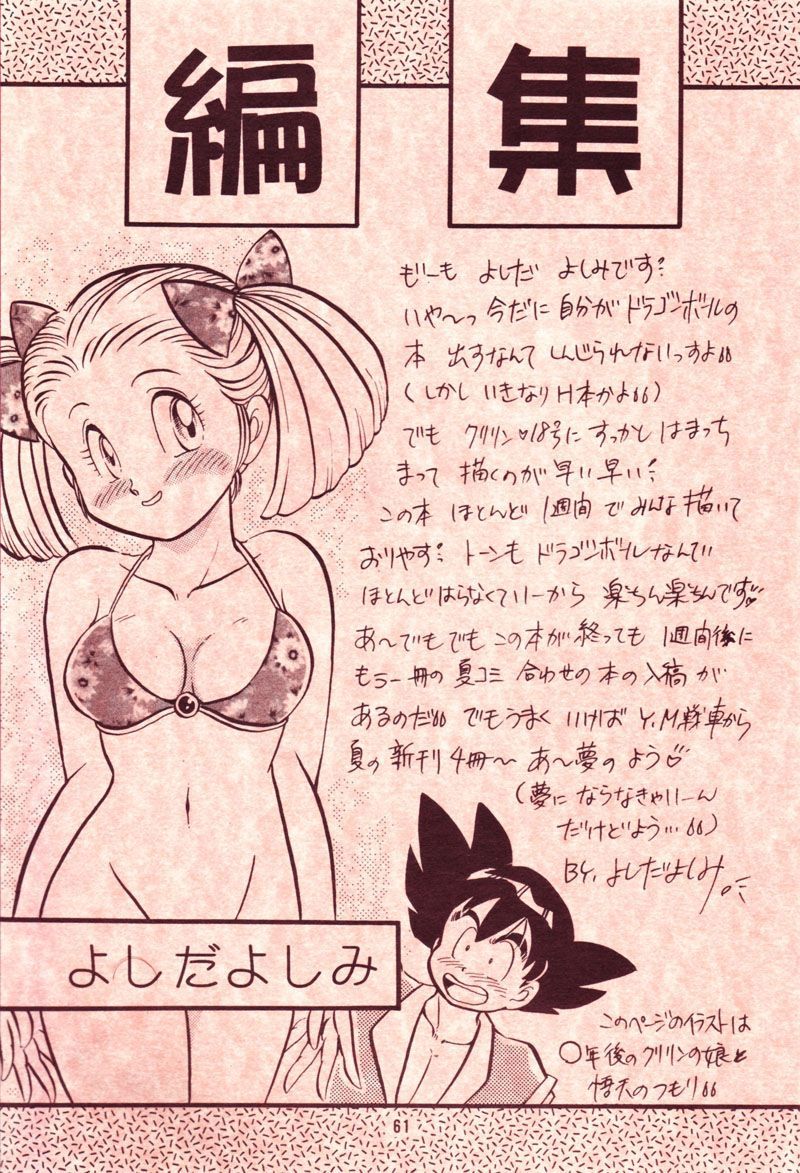 編集
もーも よしだ よしみです!
いや~っ 今だに自分がドラゴンボールの
本 出すなんて しんじられないっすよ
(しかし いきなりH本かよ)
でも クリリン♡18号に すっかし はまっち
まって 描くのが 早い早い!
この本 ほとんど 1週間で みんな描いて
おりやす! トーンも ドラゴンボールなんてい
ほとんどはらなくていーから 楽ちん楽ちんです♡
あ~でもでも この本が終っても 1週間後に
もう一冊の 夏コミ 合わせの本の入稿が
あるのだ でもうまく いけば Y.M戦車から
夏の新刊4冊~ あ~夢のよう♡
(夢に ならなきゃいーん
だけどよう…)
BY. よしだよしみ
よしだよしみ
このページのイラストは
〇年後のクリリンの娘と
悟天のつもり
61